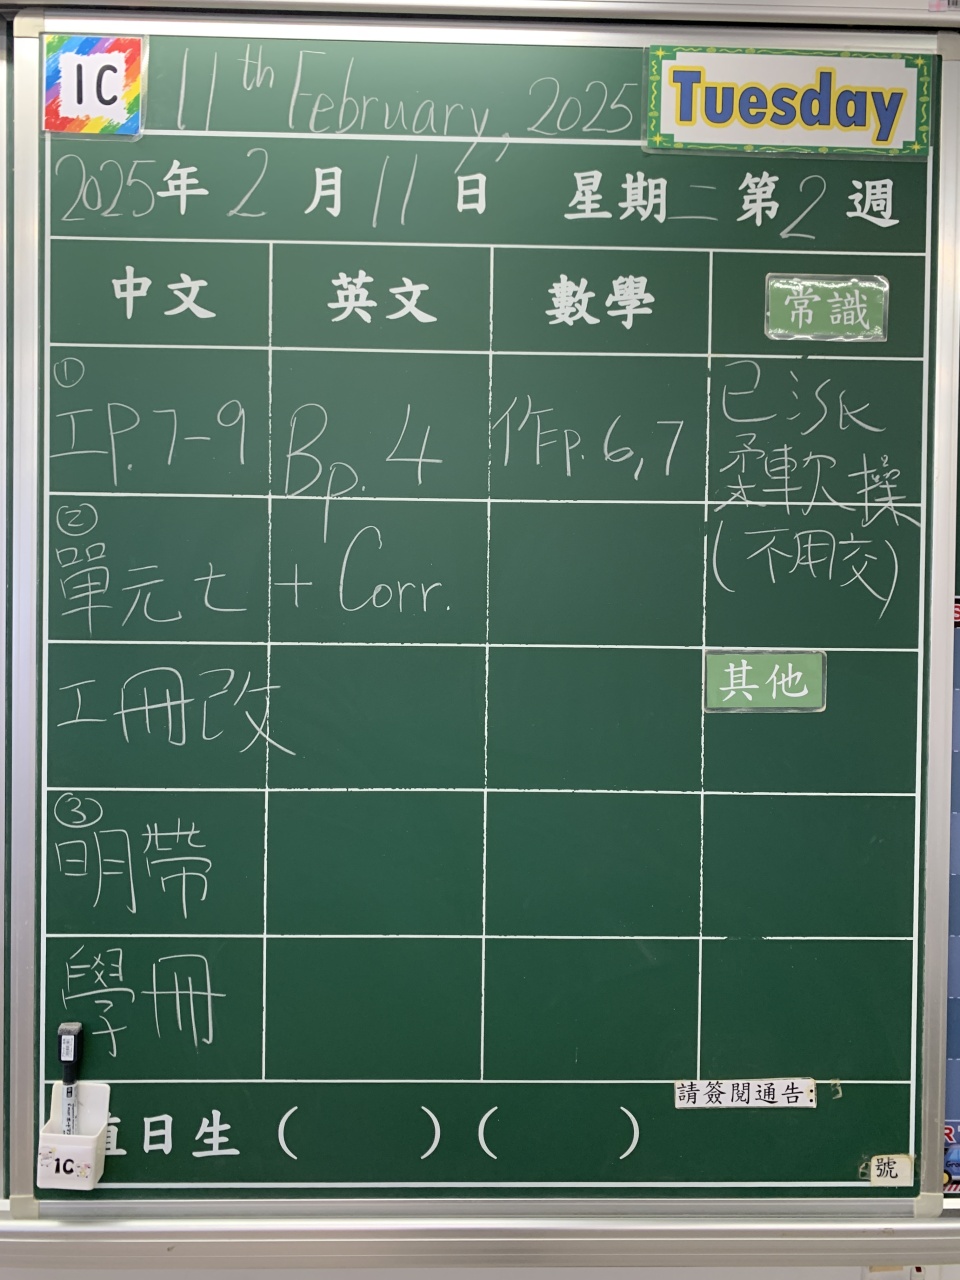 1C
11th February, 2025
Tuesday
2025年2月11日 星期二 第2週
中文 英文 數學 常識
①
工P.7-9
②
單元七
工冊改
③
明帶
學冊
Bp. 4
+ Corr.
作p. 6,7
已派
柔軟操
(不用交)
其他
請簽閱通告:
值日生 ( ) ( )
1C
號